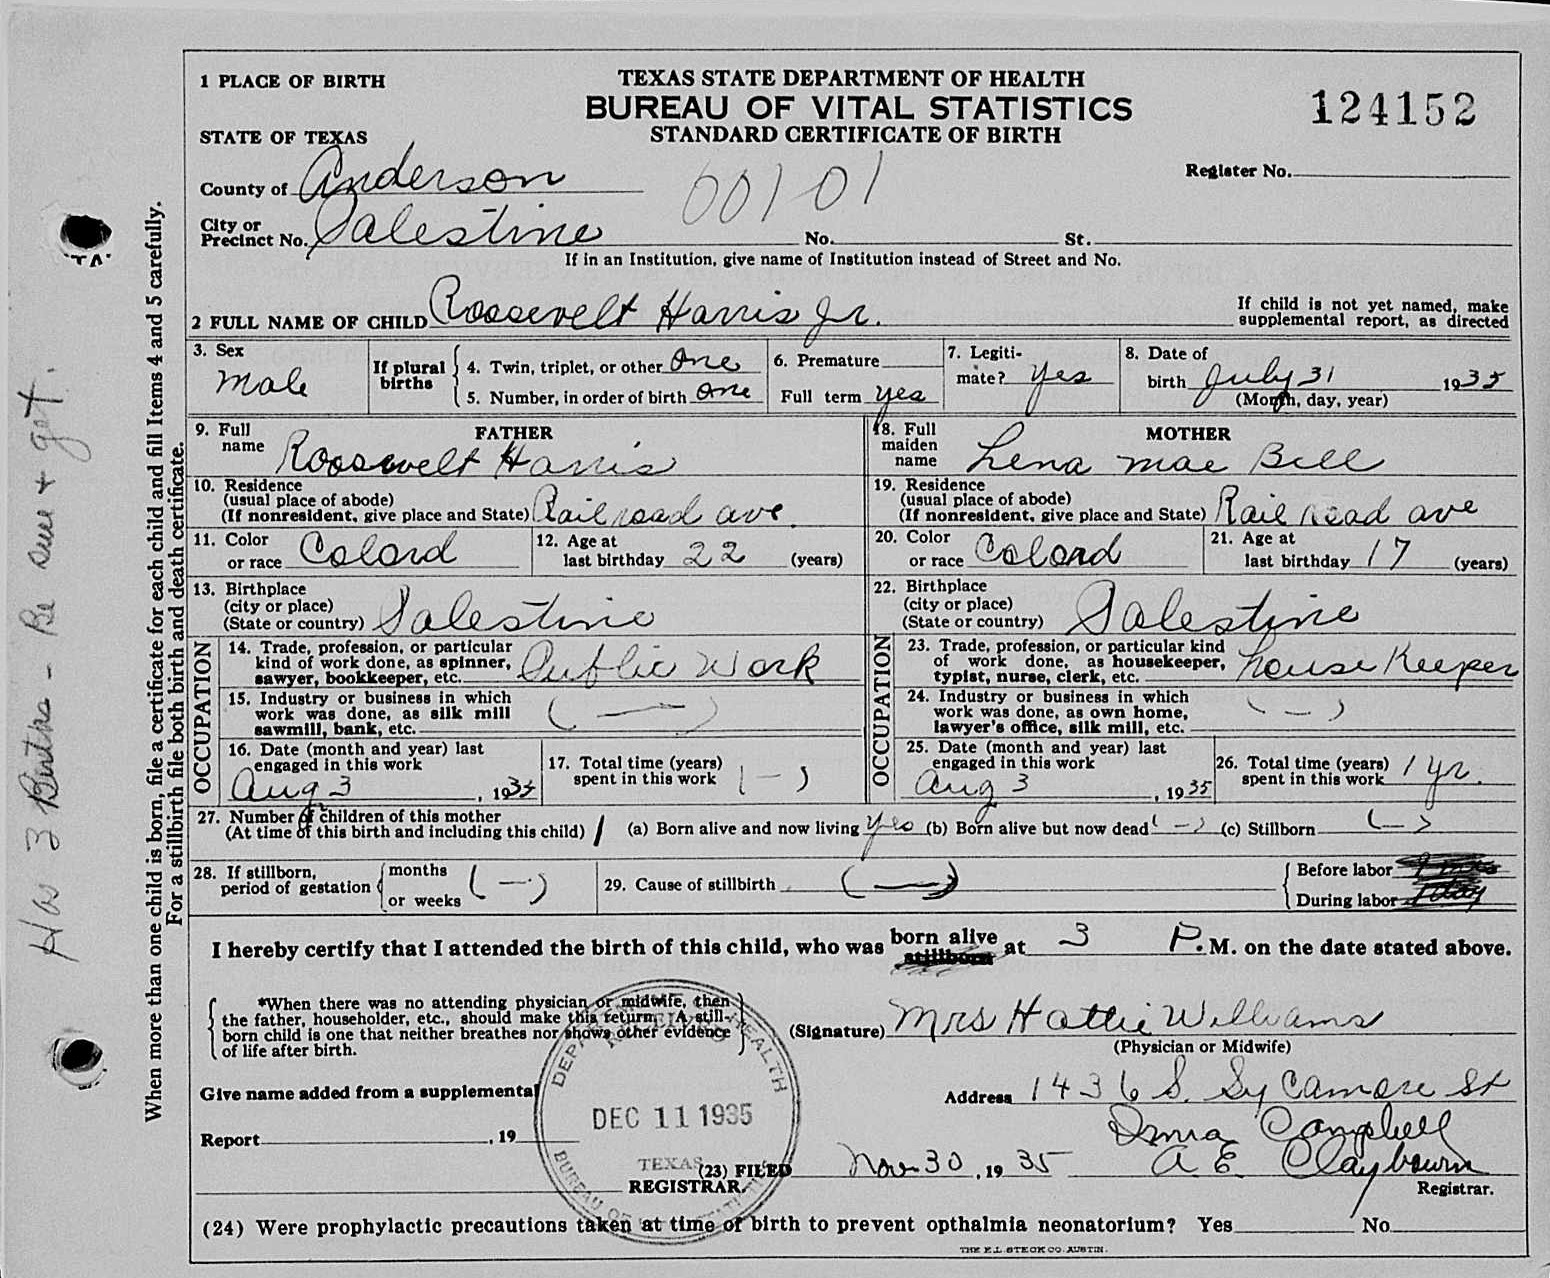 1 PLACE OF BIRTH
TEXAS STATE DEPARTMENT OF HEALTH
BUREAU OF VITAL STATISTICS
STANDARD CERTIFICATE OF BIRTH
124152
STATE OF TEXAS
County of Anderson
00101
Register No.
City or Precinct No. Palestine No. St.
If in an Institution, give name of Institution instead of Street and No.
2 FULL NAME OF CHILD Roosevelt Harris Jr.
If child is not yet named, make supplemental report, as directed
3. Sex Male
If plural births
4. Twin, triplet, or other One
5. Number, in order of birth One
6. Premature
Full term Yes
7. Legiti-mate? Yes
8. Date of birth July 31 1935
(Month, day, year)
FATHER
9. Full name Roosevelt Harris
10. Residence (usual place of abode) (If nonresident, give place and State) Railroad ave.
11. Color or race Colord
12. Age at last birthday 22 (years)
13. Birthplace (city or place) (State or country) Palestine
OCCUPATION
14. Trade, profession, or particular kind of work done, as spinner, sawyer, bookkeeper, etc. Public Work
15. Industry or business in which work was done, as silk mill sawmill, bank, etc. ( — )
16. Date (month and year) last engaged in this work Aug 3, 1935
17. Total time (years) spent in this work ( — )
MOTHER
18. Full maiden name Lena Mae Bell
19. Residence (usual place of abode) (If nonresident, give place and State) Rail Road ave
20. Color or race Colord
21. Age at last birthday 17 (years)
22. Birthplace (city or place) (State or country) Palestine
OCCUPATION
23. Trade, profession, or particular kind of work done, as housekeeper, typist, nurse, clerk, etc. house Keeper
24. Industry or business in which work was done, as own home, lawyer's office, silk mill, etc. ( — )
25. Date (month and year) last engaged in this work Aug 3, 1935
26. Total time (years) spent in this work 1 yr.
27. Number of children of this mother
(At time of this birth and including this child) 1 (a) Born alive and now living yes (b) Born alive but now dead ( — ) (c) Stillborn ( — )
28. If stillborn, period of gestation months or weeks ( — )
29. Cause of stillbirth ( — )
Before labor
During labor
I hereby certify that I attended the birth of this child, who was born alive stillborn at 3 P. M. on the date stated above.
*When there was no attending physician or midwife, then the father, householder, etc., should make this return. A still-born child is one that neither breathes nor shows other evidence of life after birth.
(Signature) Mrs Hattie Williams
(Physician or Midwife)
Give name added from a supplemental
Address 1436 S. Sycamore St
Report , 19
DEC 11 1935
TEXAS
Campbell
(23) FILED Nov 30, 1935 A E Claybourn
REGISTRAR.
Registrar.
(24) Were prophylactic precautions taken at time of birth to prevent opthalmia neonatorium? Yes No
THE E.L. STECK CO. AUSTIN.
When more than one child is born, file a certificate for each child and fill Items 4 and 5 carefully.
For a stillbirth file both birth and death certificate.
Has 3 Births - Be sure + get.